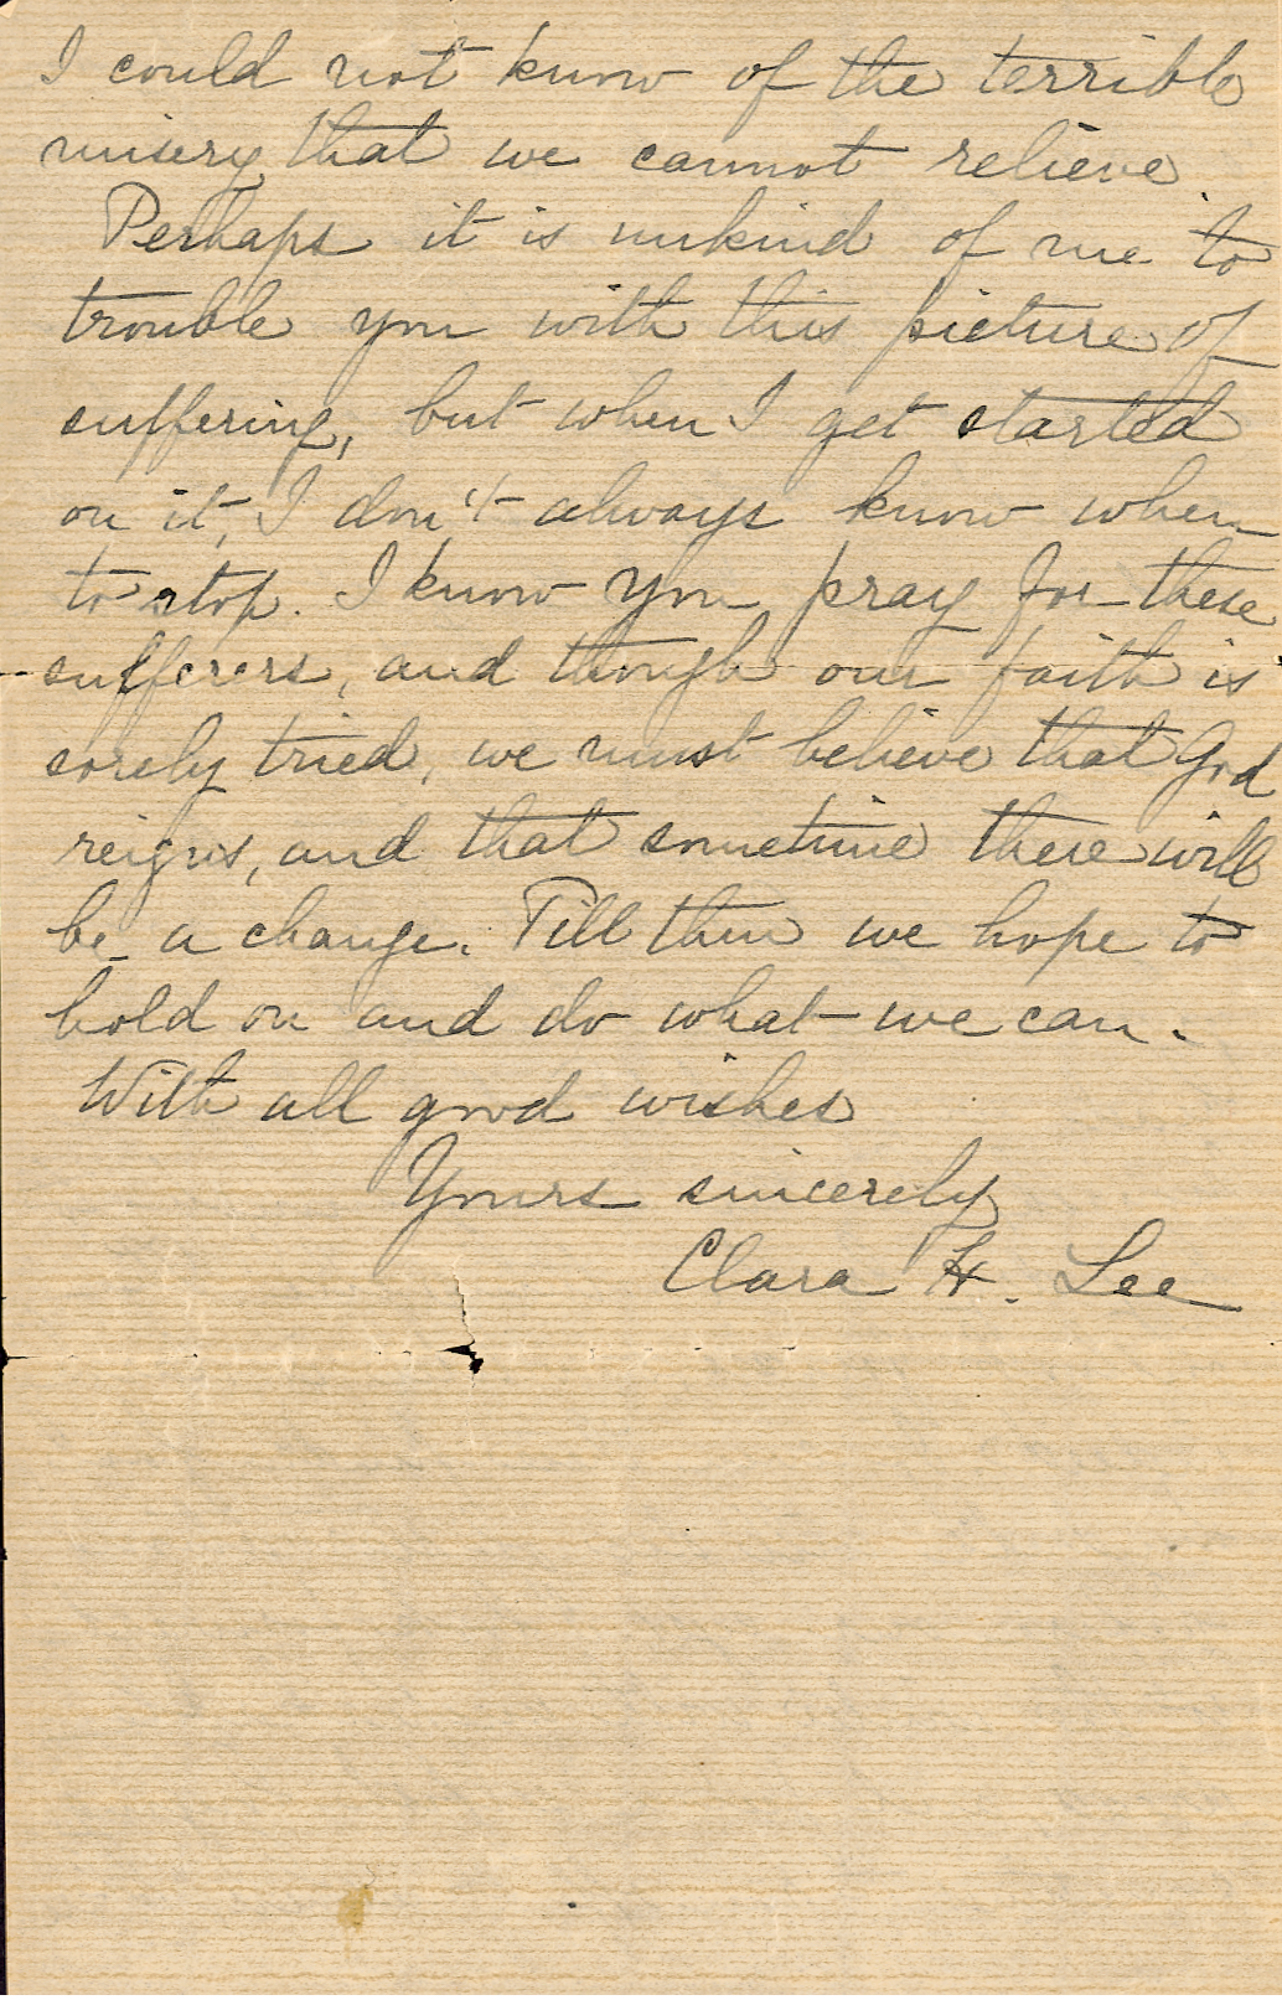 I could not know of the terrible
misery that we cannot relieve.
Perhaps it is unkind of me to
trouble you with this picture of
suffering, but when I get started
on it, I don't always know when
to stop. I know you pray for these
sufferers, and though our faith is
sorely tried, we must believe that God
reigns, and that sometime there will
be a change. Till then we hope to
hold on and do what we can.
With all good wishes
Yours sincerely
Clara H. Lee